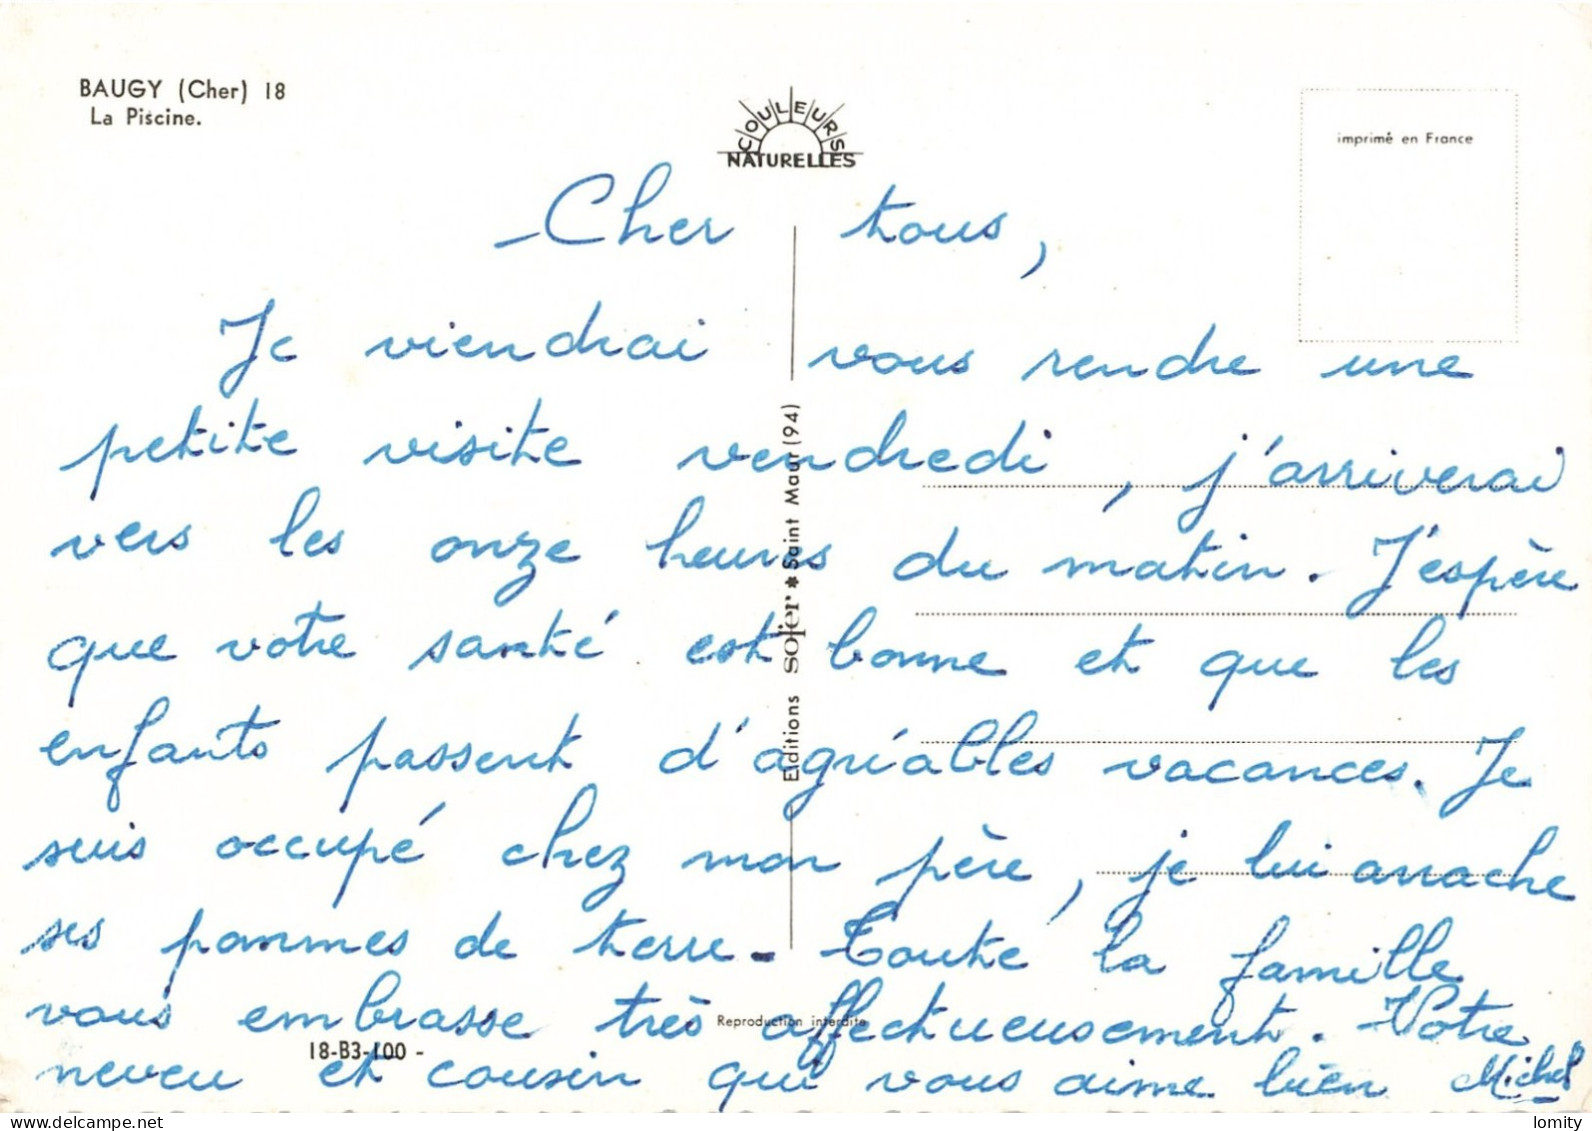 BAUGY (Cher) 18
La Piscine.
COULEURS
NATURELLES
imprimé en France
- Cher tous,
Je viendrai vous rendre une
petite visite vendredi, j'arriverai
vers les onze heures du matin. J'espère
que votre santé est bonne et que les
enfants passent d'agréables vacances. Je
suis occupé chez mon père, je lui arrache
ses pommes de terre. Toute la famille
vous embrasse très affectueusement. Votre
neveu et cousin qui vous aime bien Michel
Editions sofer * Saint Maur (94)
Reproduction interdite
18-B3-100 -
delcampe.net
lomity